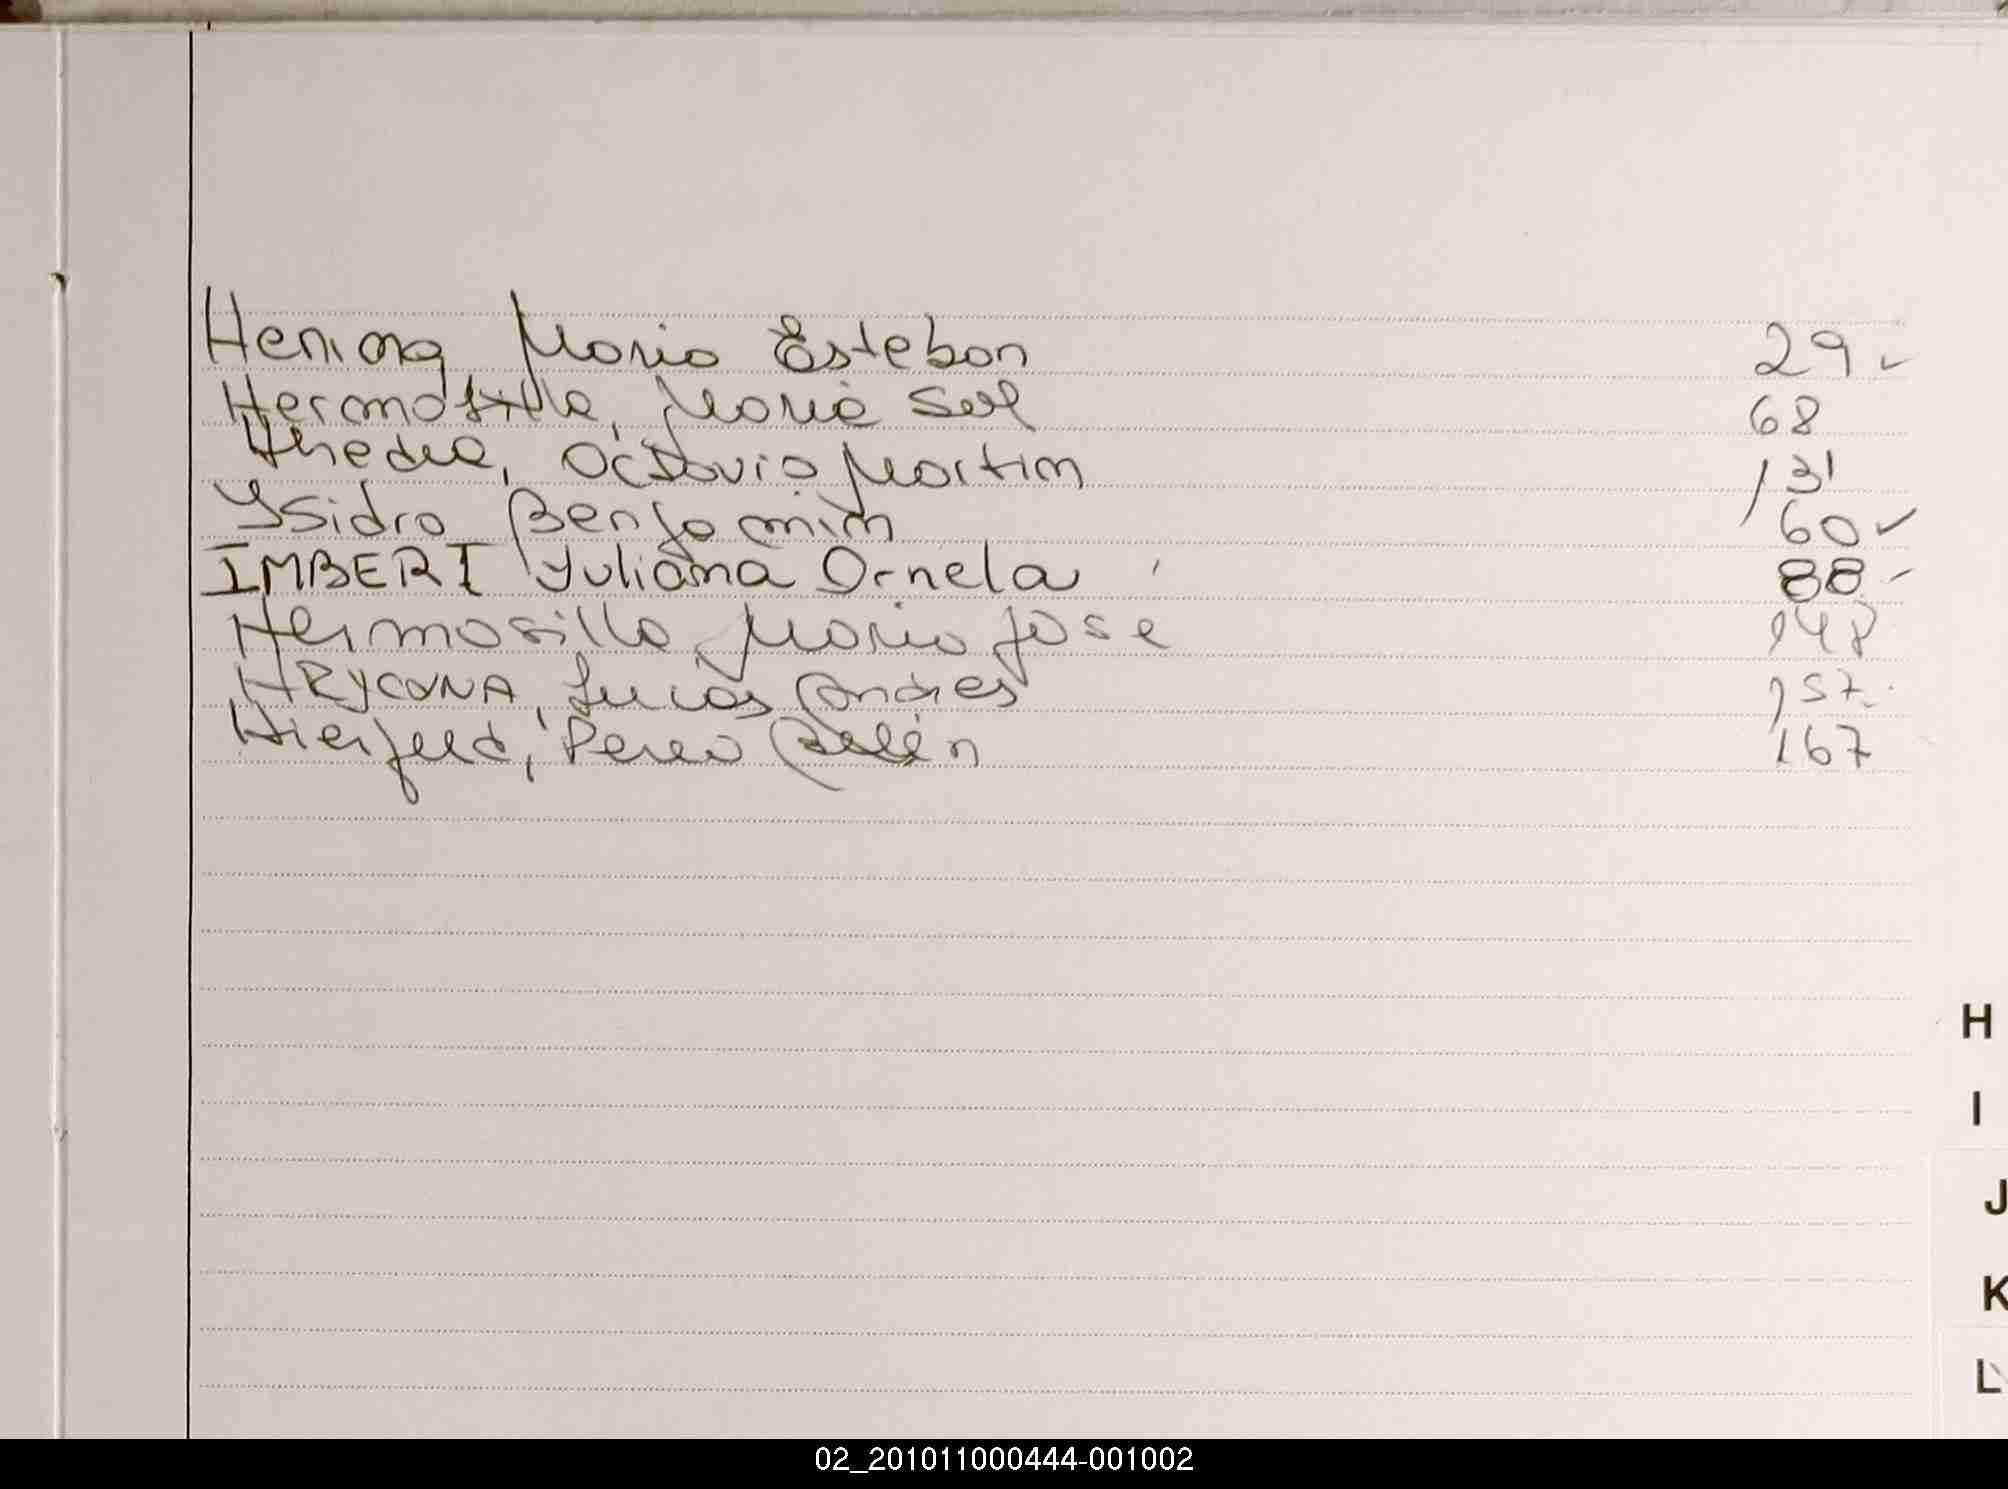 Hening Mario Esteban 29 ✓
Hermosilla, Maria Sol 68
Octavio Martin 131
Ysidro Benjamin 60 ✓
IMBERT Yuliana Ornela 88
Hermosilla, Maria Jose 148
HRYCONA, Lucas Andres 157
Belén 167
H
I
J
K
L
02_201011000444-001002